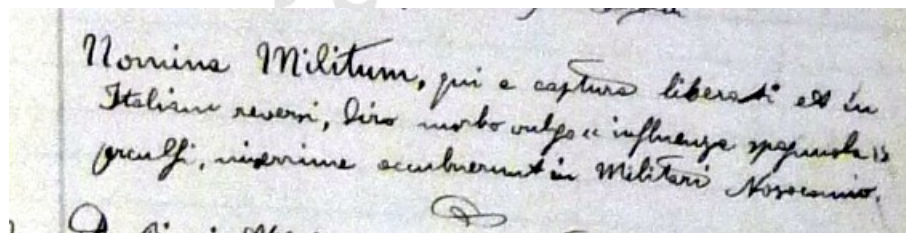 Nomina Militum, qui e captura liberati et in
Italiam reversi, diro morbo vulgo « influenza spagnuola »
perculsi, miserrime occubuerunt in Militari Nosocomio.